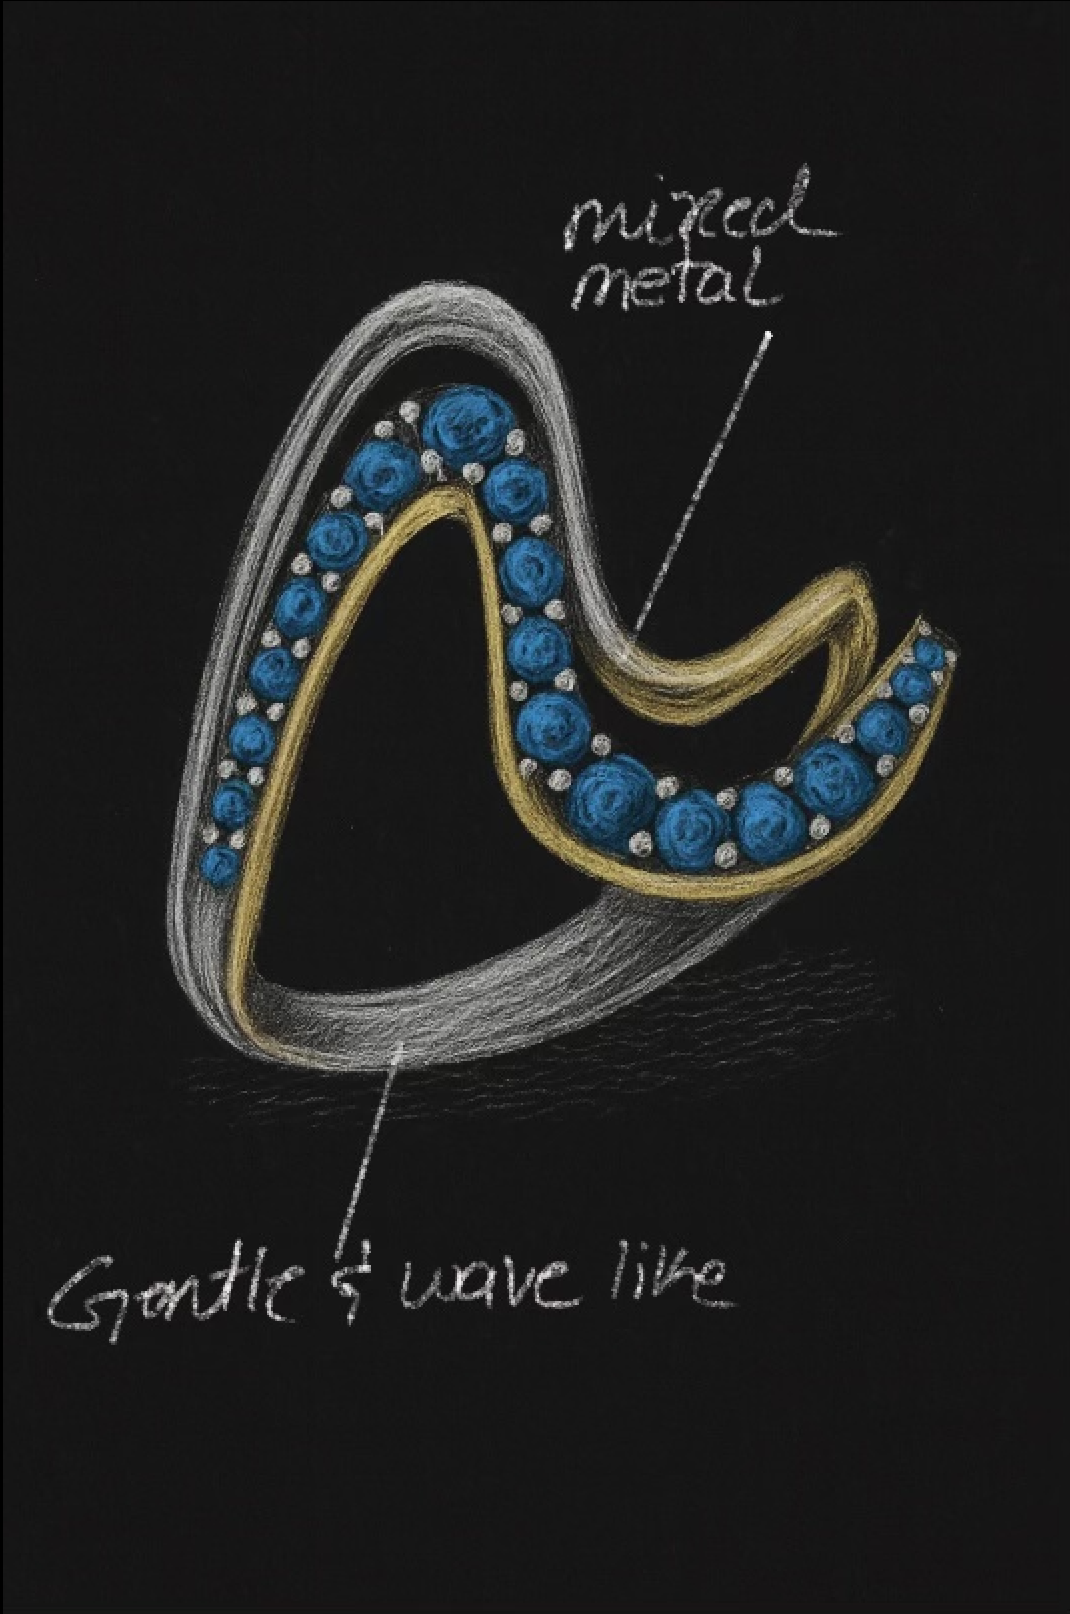 mixed
metal
Gentle & wave like